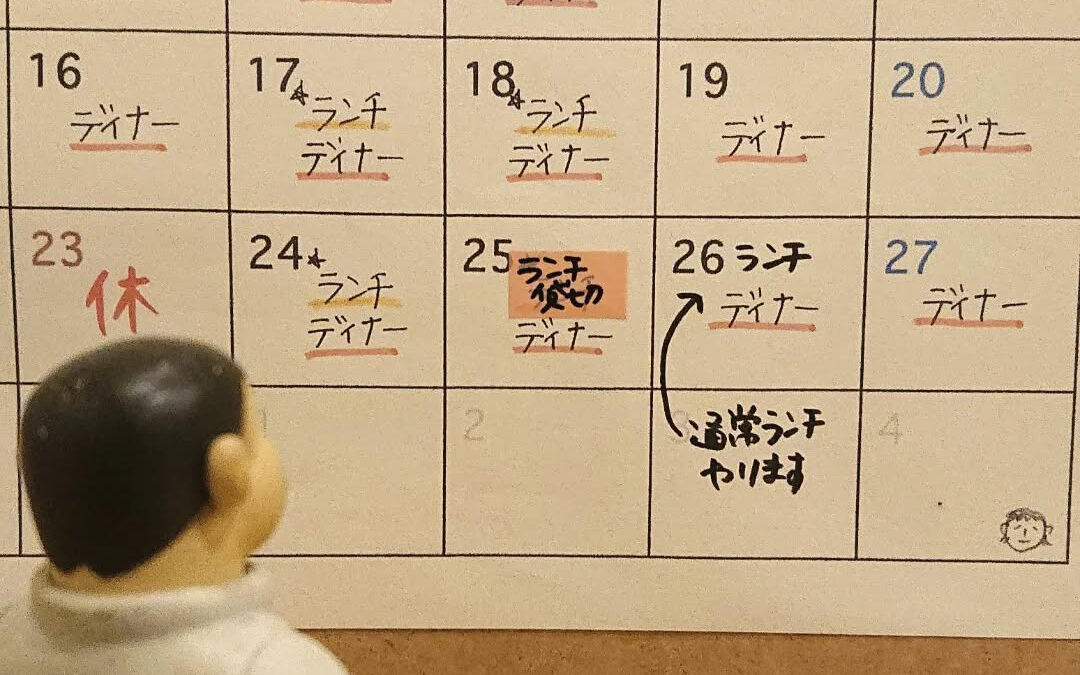 16
ディナー
17
☆ランチ
ディナー
18
☆ランチ
ディナー
19
ディナー
20
ディナー
23
休
24
☆ランチ
ディナー
25
ランチ
貸切
ディナー
26 ランチ
ディナー
27
ディナー
2
通常ランチ
やります
4